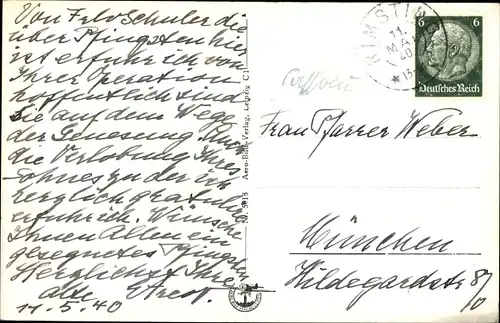 Von Frl. Schuler die
über Pfingsten hier
ist erfuhr ich von
Ihrer Operation
hoffentlich sind
Sie auf dem Wege
der Genesung. Schon
die Verlobung Ihres
Sohnes zu der ich
herzlich gratuliere
erfuhr ich. Wünsche
Ihnen Allen ein
gesegnetes Pfingsten
Herzlichst Ihre
alte
11.5.40
Aero-Bild-Verlag, Leipzig C1
RIMSTING
11.
MAI
40
6 6
Deutsches Reich
Frau Pfarrer Weber
München
Hildegardstr 8/0